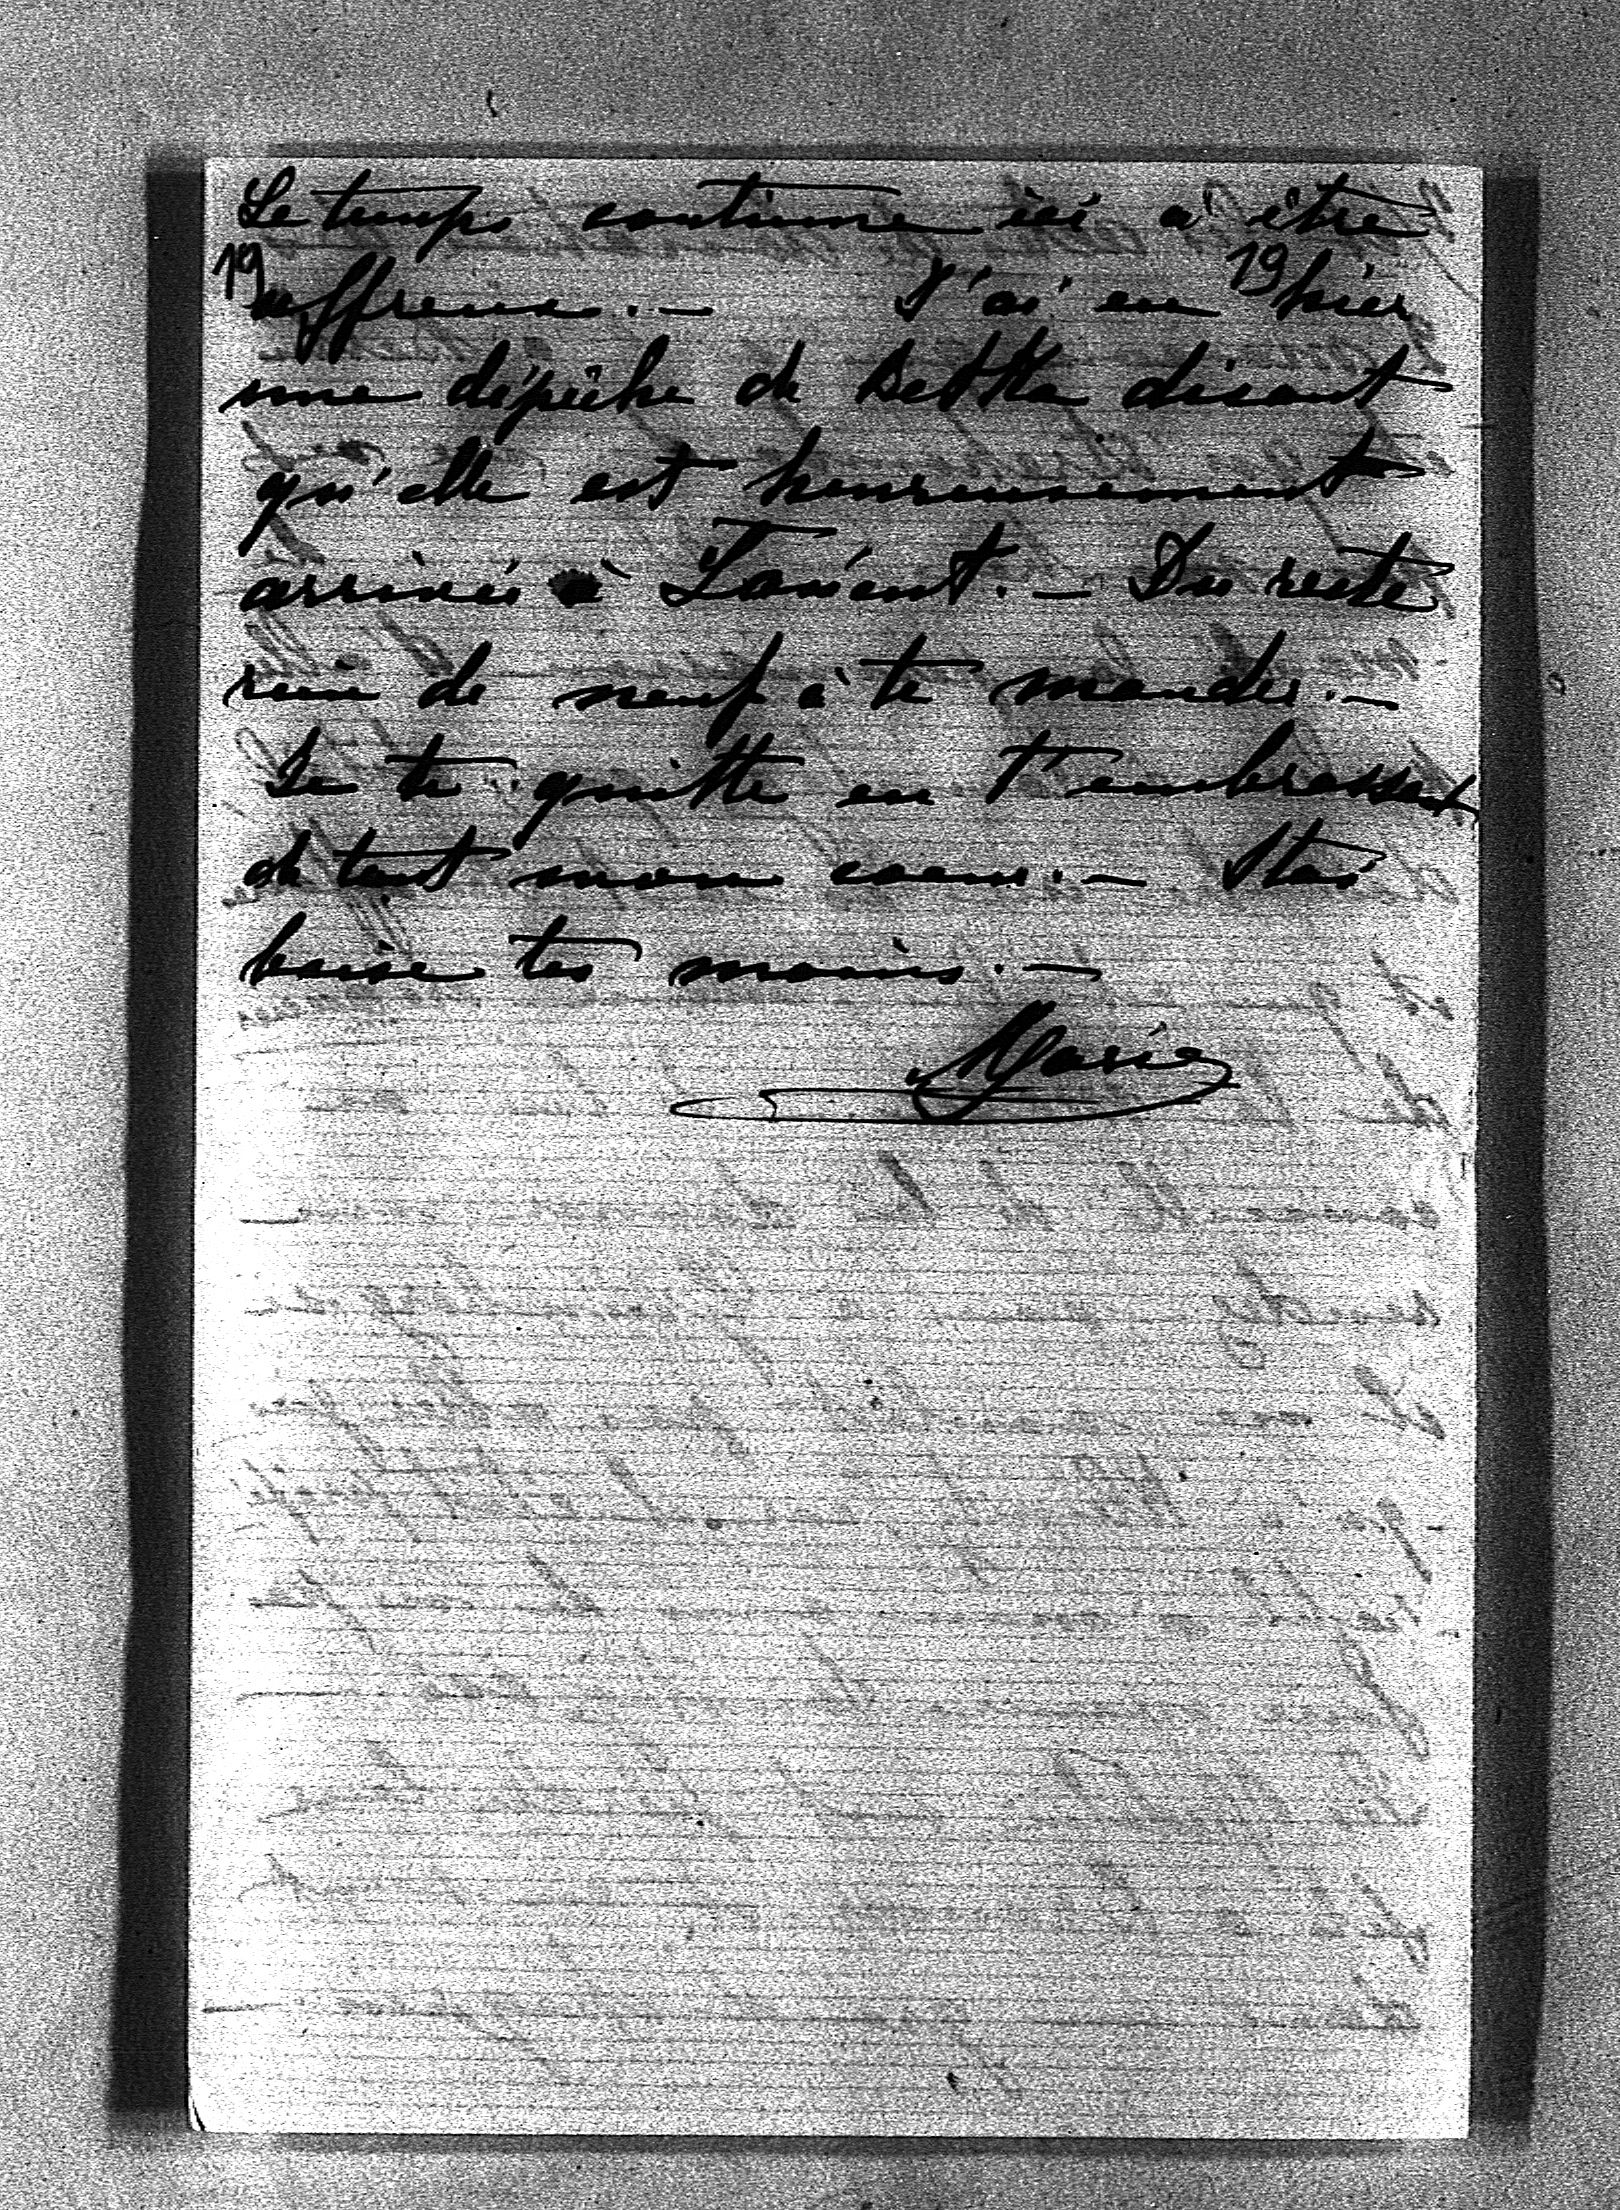 Le temps continue ici à être
19 affreux. — J'ai eu 19 hier
une dépêche de Detta disant
qu'elle est heureusement
arrivée à Torient. — Du reste
rien de neuf à te mander. —
Je te quitte en t'embrassant
de tout mon coeur. — Stas
baise tes mains. —
Marie